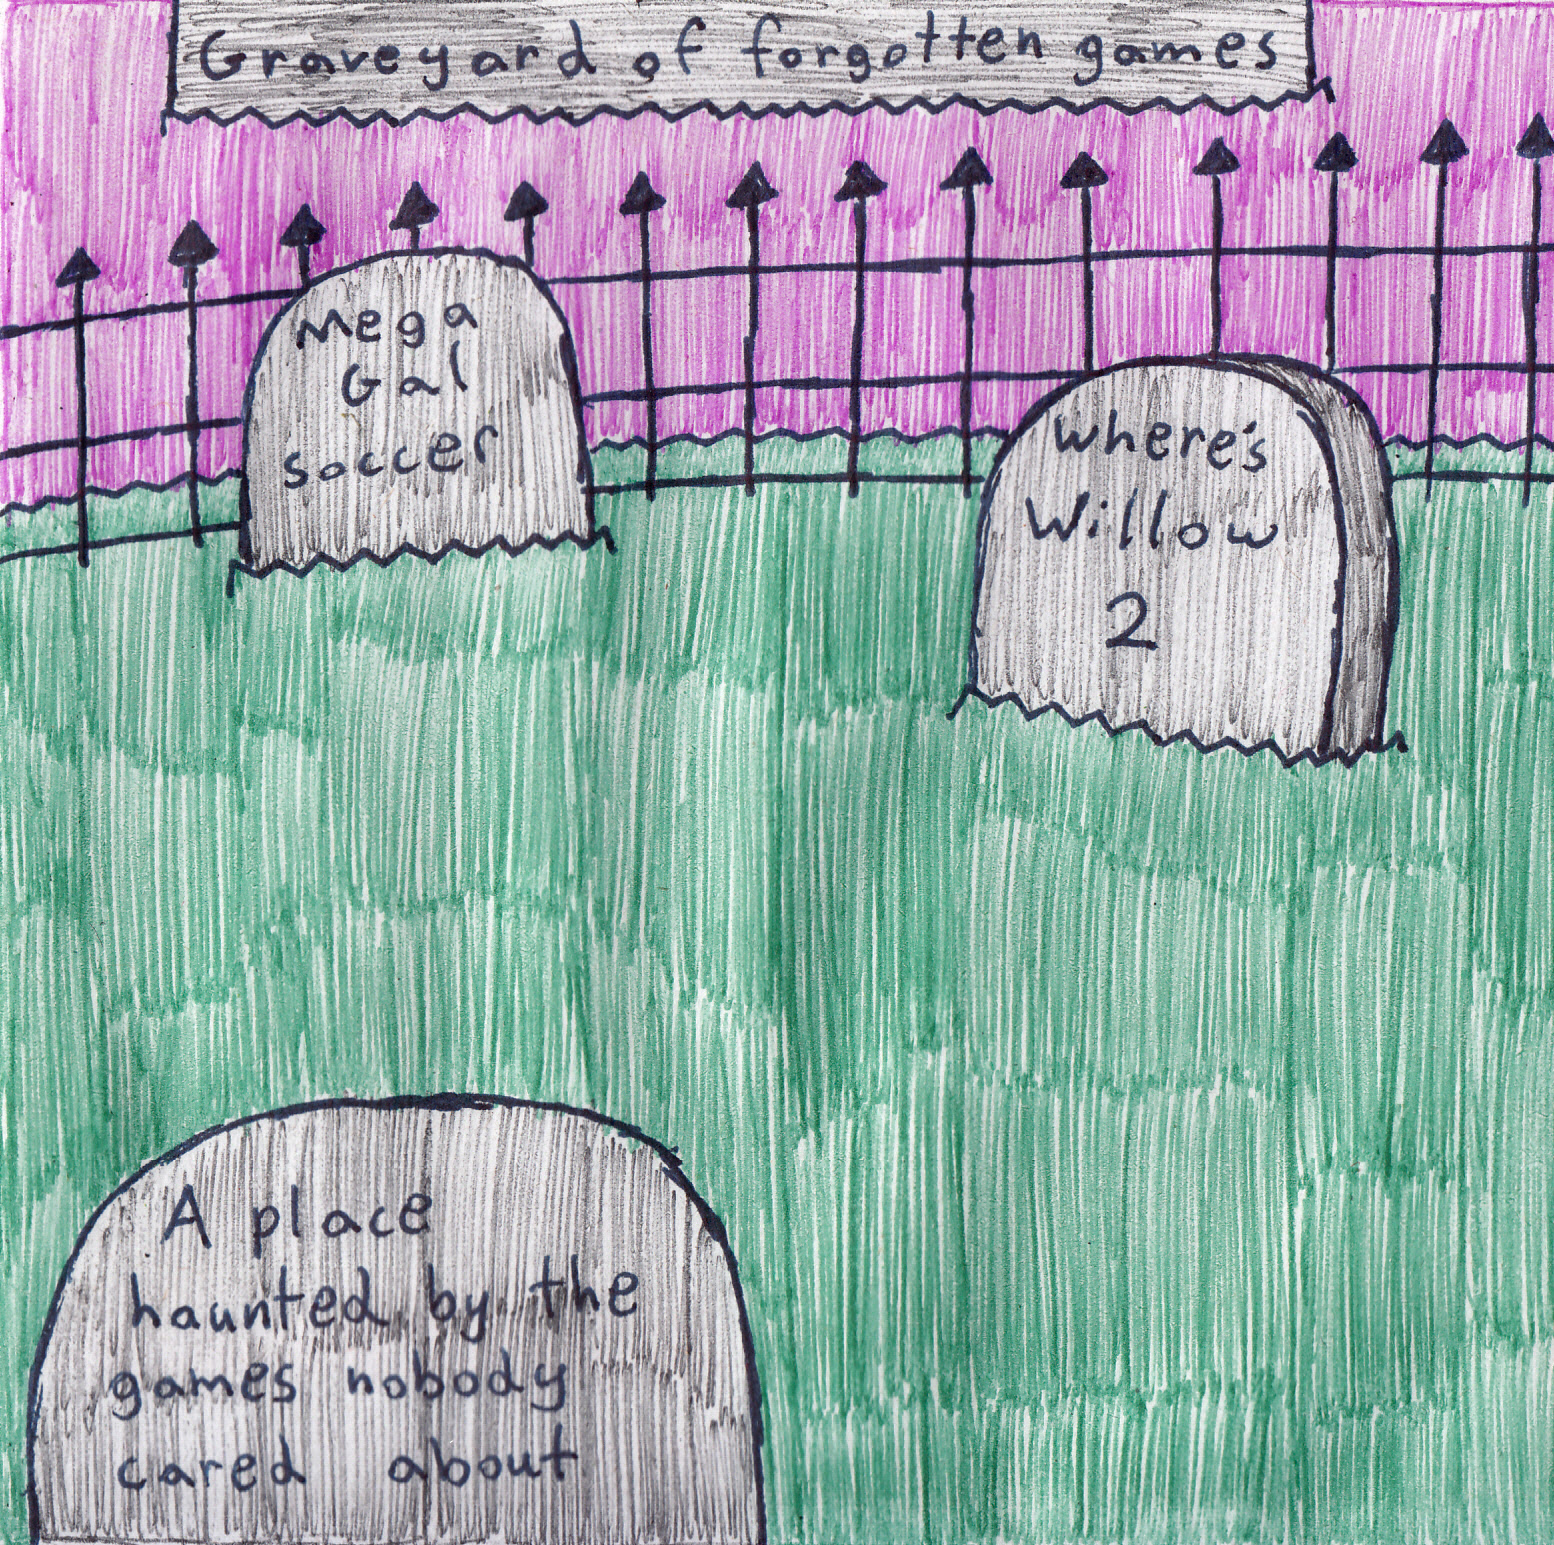 Graveyard of forgotten games
Mega
Gal
soccer
Where's
Willow
2
A place
haunted by the
games nobody
cared about